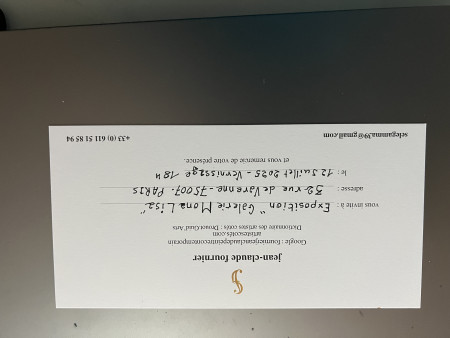 jean-claude fournier
Google : fournierjeanclaudepeintrecontemporain
artistescotés.com
Dictionnaire des artistes cotés : Drouot/Guid'Arts
vous invite à : Exposition "Galerie Mona Lisa"
adresse : 32 rue de Varenne - 75007 - PARIS
le : 12 Juillet 2025 - Vernissage 18H
et vous remercie de votre présence.
selegamma39@gmail.com +33 (0) 611 51 85 94